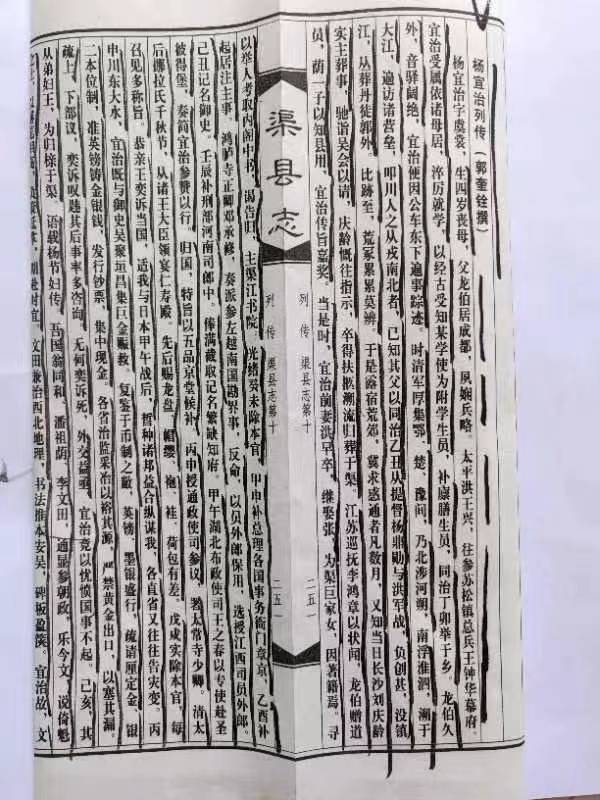 杨宜治列传（郭奎铨撰）
杨宜治字虞裳，生四岁丧母，父龙伯居成都，夙娴兵略。太平洪王兴，往参苏松镇总兵王钟华幕府。
宜治受属依诸母居，淬厉就学，以经古受知某学使为附学生员，补廪膳生员，同治丁卯举于乡，龙伯久
外，音驿阔绝，宜治便因公车东下遍事踪迹。时清军厚集鄂、楚、豫间，乃北涉河朔，南浮淮泗，溯于
大江，遍访诸营垒，叩川人之从戎南北者，已知其父以同治乙丑从提督杨鼎勋与洪军战，负创甚，没镇
江，从葬丹徒郭外，比跡至，荒冢累累莫辨。于是露宿荒郊，冀求惑通者凡数月，又知当日长沙刘庆龄
实主葬事，驰诣吴会以请，庆龄慨往指示，卒得扶榇溯流归葬于渠。江苏巡抚李鸿章以状闻，龙伯赠道
员，荫一子以知县用，宜治传旨嘉奖。当是时，宜治前妻洪早卒，继娶张，为渠巨家女，因著籍焉。寻
渠县志
列传 渠县志第十
二五一
列传 渠县志第十
二五一
以举人考取内阁中书，谒告归，主渠江书院，光绪癸未除本官，甲申补总理各国事务衙门章京，乙酉补
起居注主事，鸿胪寺正卿邓承修，奏派参左越南国勘界事，反命，以员外郎保用，选授江西司员外郎。
己丑记名御史，壬辰补刑部河南司郎中。俸满截取记名繁缺知府。甲午湖北布政使司王之春以专使赴圣
彼得堡，奏简宜治参赞以行。归国，特旨以五品京堂候补，丙申授通政使司参议，署太常寺少卿。清太
后挪拉氏千秋节，从诸王大臣领宴仁寿殿。先后赐龙盘、帽缨、袍、袿、荷包有差。戊戌实除本官，每
召见多称旨。恭亲王奕䜣当国，适我与日本甲午战后，暂种诸邦益合纵谋我，各直省又往往告灾变。丙
申川东大水，宜治既与御史吴聚垣昌集巨金赐救。复鉴于币制之敝，英镑、墨银盛行，疏请厘定金、银
二本位制，准英镑铸金银钱，发行钞票，集中现金。各省治监采冶以裕其源，严禁黄金出口，以塞其漏。
疏上，下部议，奕䜣叹韪其后事率多咨询。无何奕䜣死，外交益亟，宜治竟以忧愤国事不起。己亥，其
从弟妇王，为归榇于渠，语载杨节妇传。吾国翁同和、潘祖荫、李文田，通显参朝政，乐今文，说倚魁
文田兼治西北地理，书法推本安吴，碑板盈箧。宜治故，文